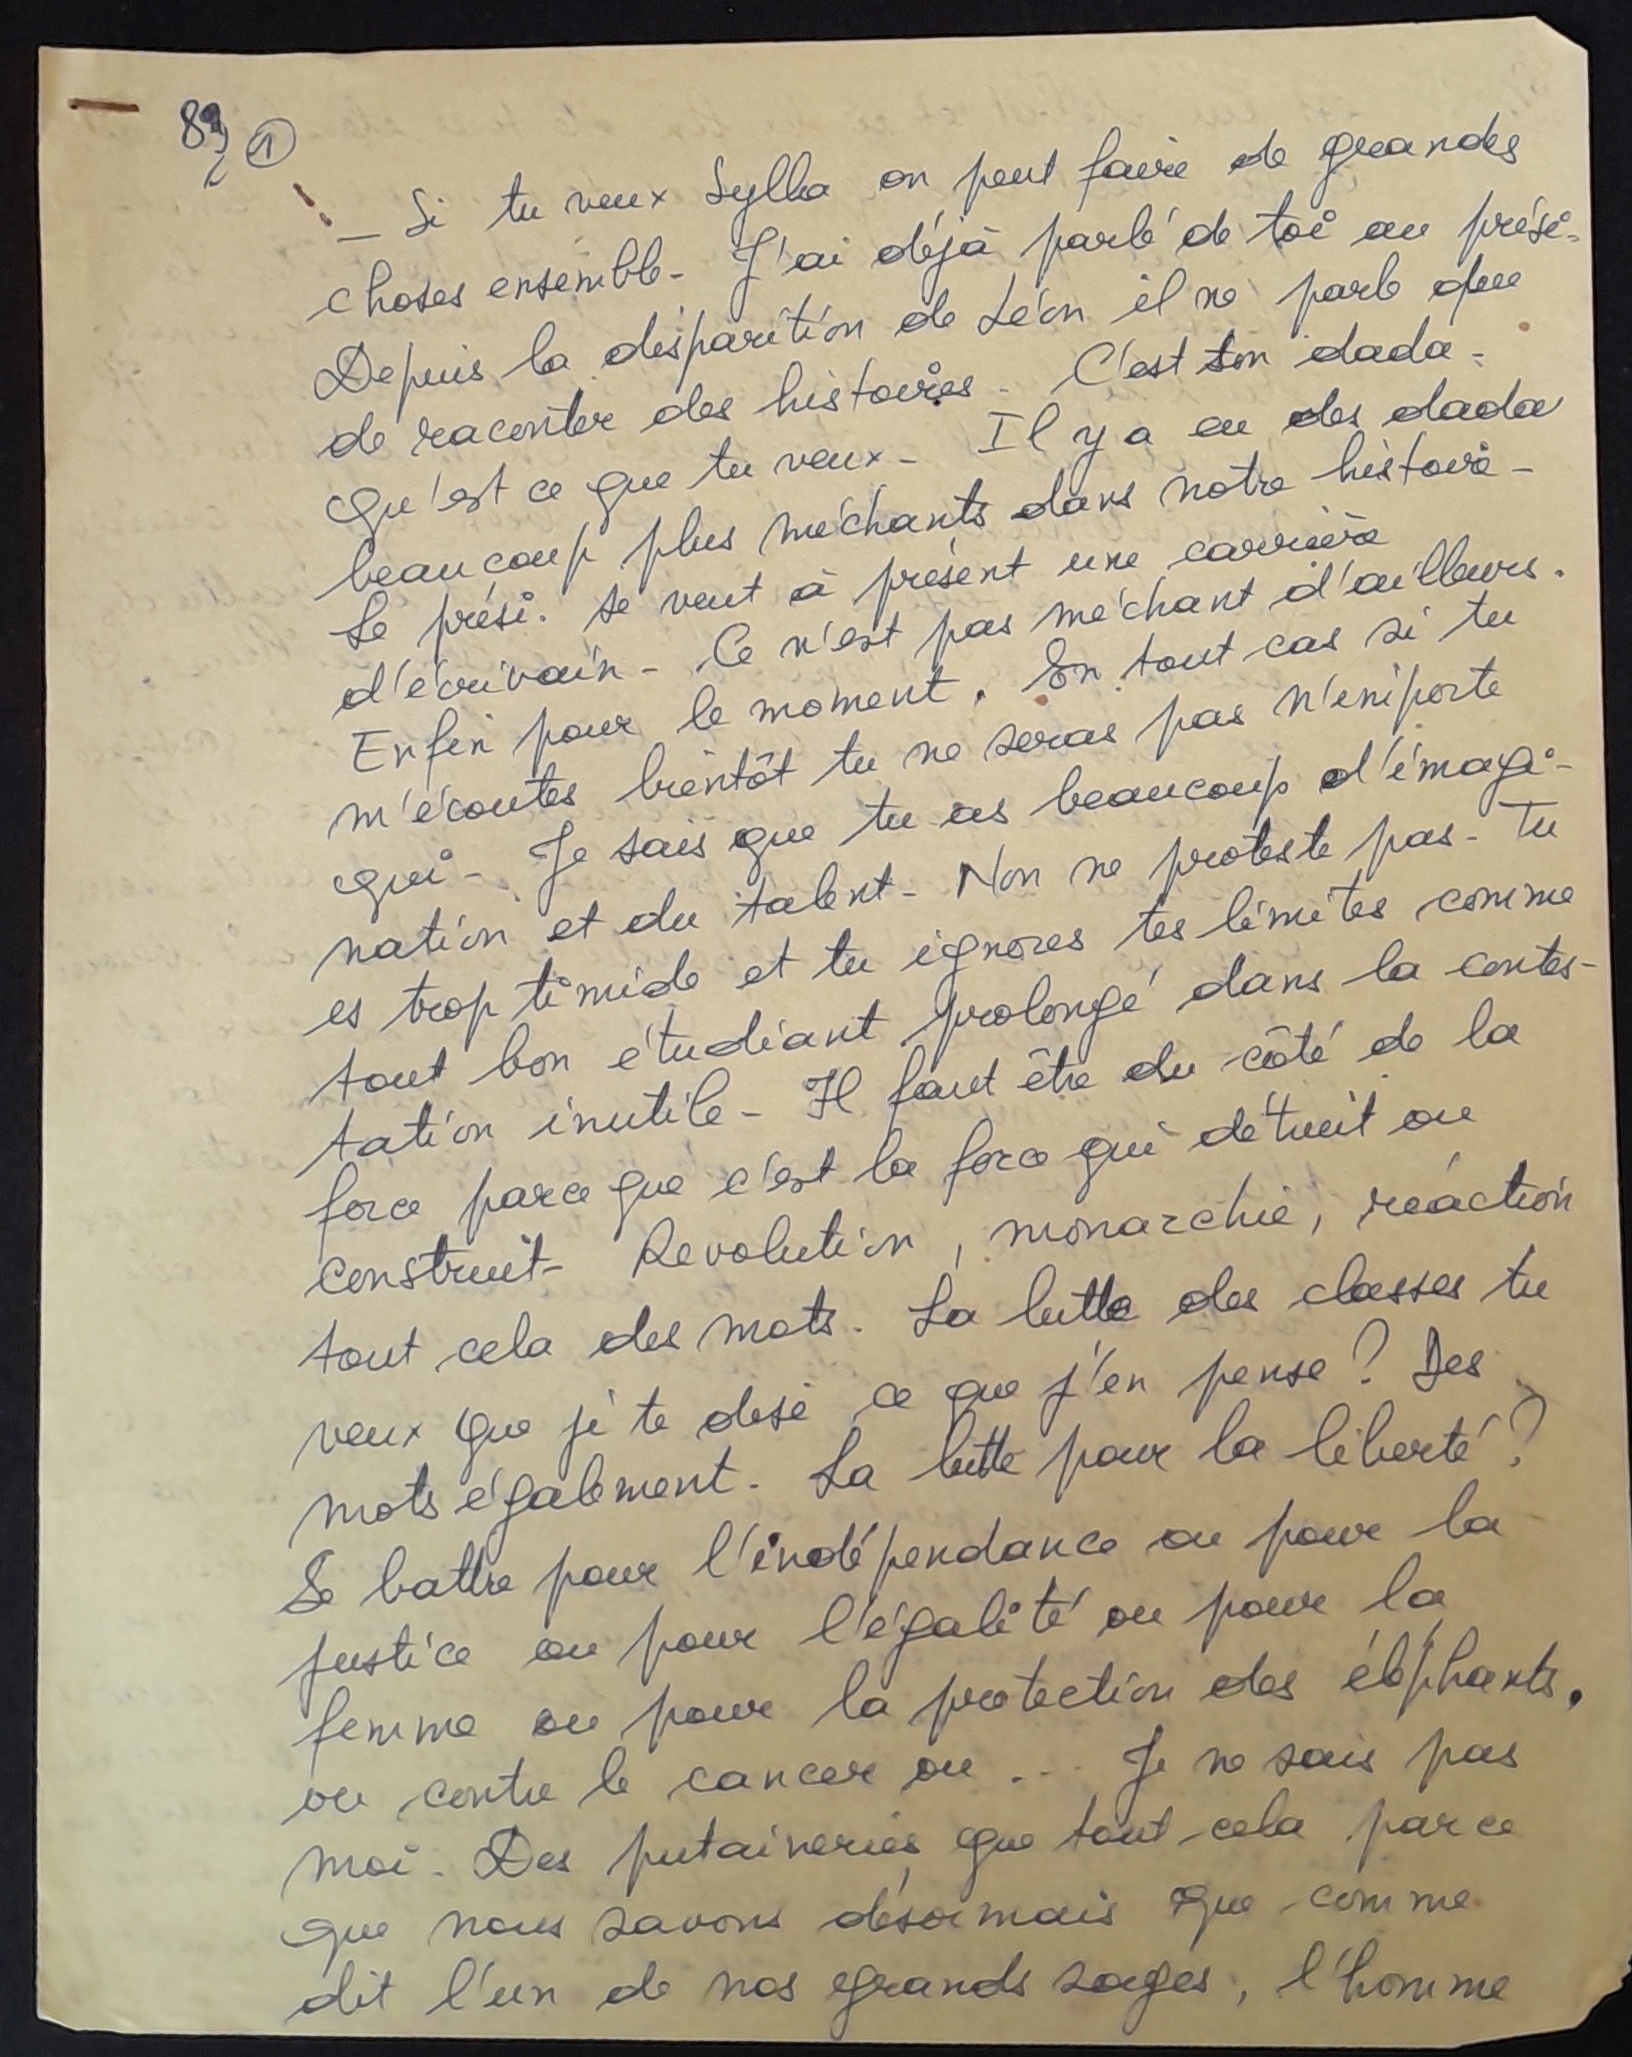 89 2 ①
— Si tu veux Sylla on peut faire de grandes
choses ensemble - J'ai déjà parlé de toi au prési-
Depuis la disparition de Léon il ne parle que
de raconter des histoires - C'est son dada -
Qu'est ce que tu veux - Il y a eu des dada
beaucoup plus méchants dans notre histoire -
Le prési. se veut à présent une carrière
d'écrivain - Ce n'est pas méchant d'ailleurs.
Enfin pour le moment. En tout cas si tu
m'écoutes bientôt tu ne seras pas n'importe
qui - Je sais que tu as beaucoup d'imagi-
nation et du talent - Non ne proteste pas - Tu
es trop timide et tu ignores tes limites comme
tout bon étudiant prolongé dans la contes-
tation inutile - Il faut être du côté de la
force parce que c'est la force qui détruit ou
construit - Révolution, monarchie, réaction
tout cela des mots. La lutte des classes tu
veux que je te dise ce que j'en pense ? Des
mots également. La lutte pour la liberté ?
Se battre pour l'indépendance ou pour la
justice ou pour l'égalité ou pour la
femme ou pour la protection des éléphants.
ou contre le cancer ou ... Je ne sais pas
moi. Des putaineries que tout cela parce
que nous savons désormais que comme
dit l'un de nos grands sages, l'homme